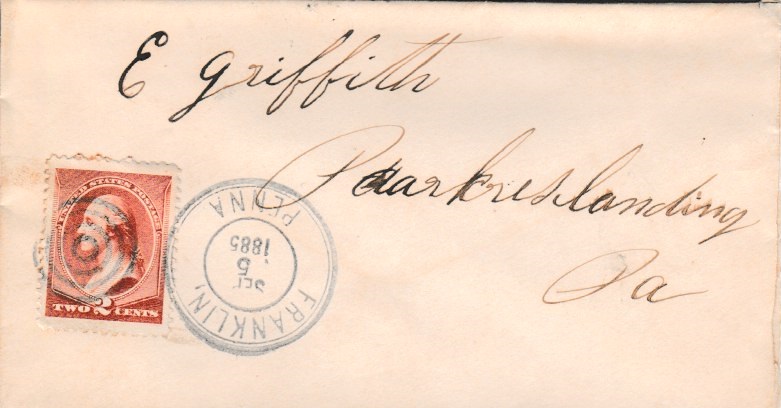 E Griffith
Parkreslanding
Pa
UNITED STATES POSTAGE
TWO 2 CENTS
FRANKLIN,
SEP
5
1885
PENNA